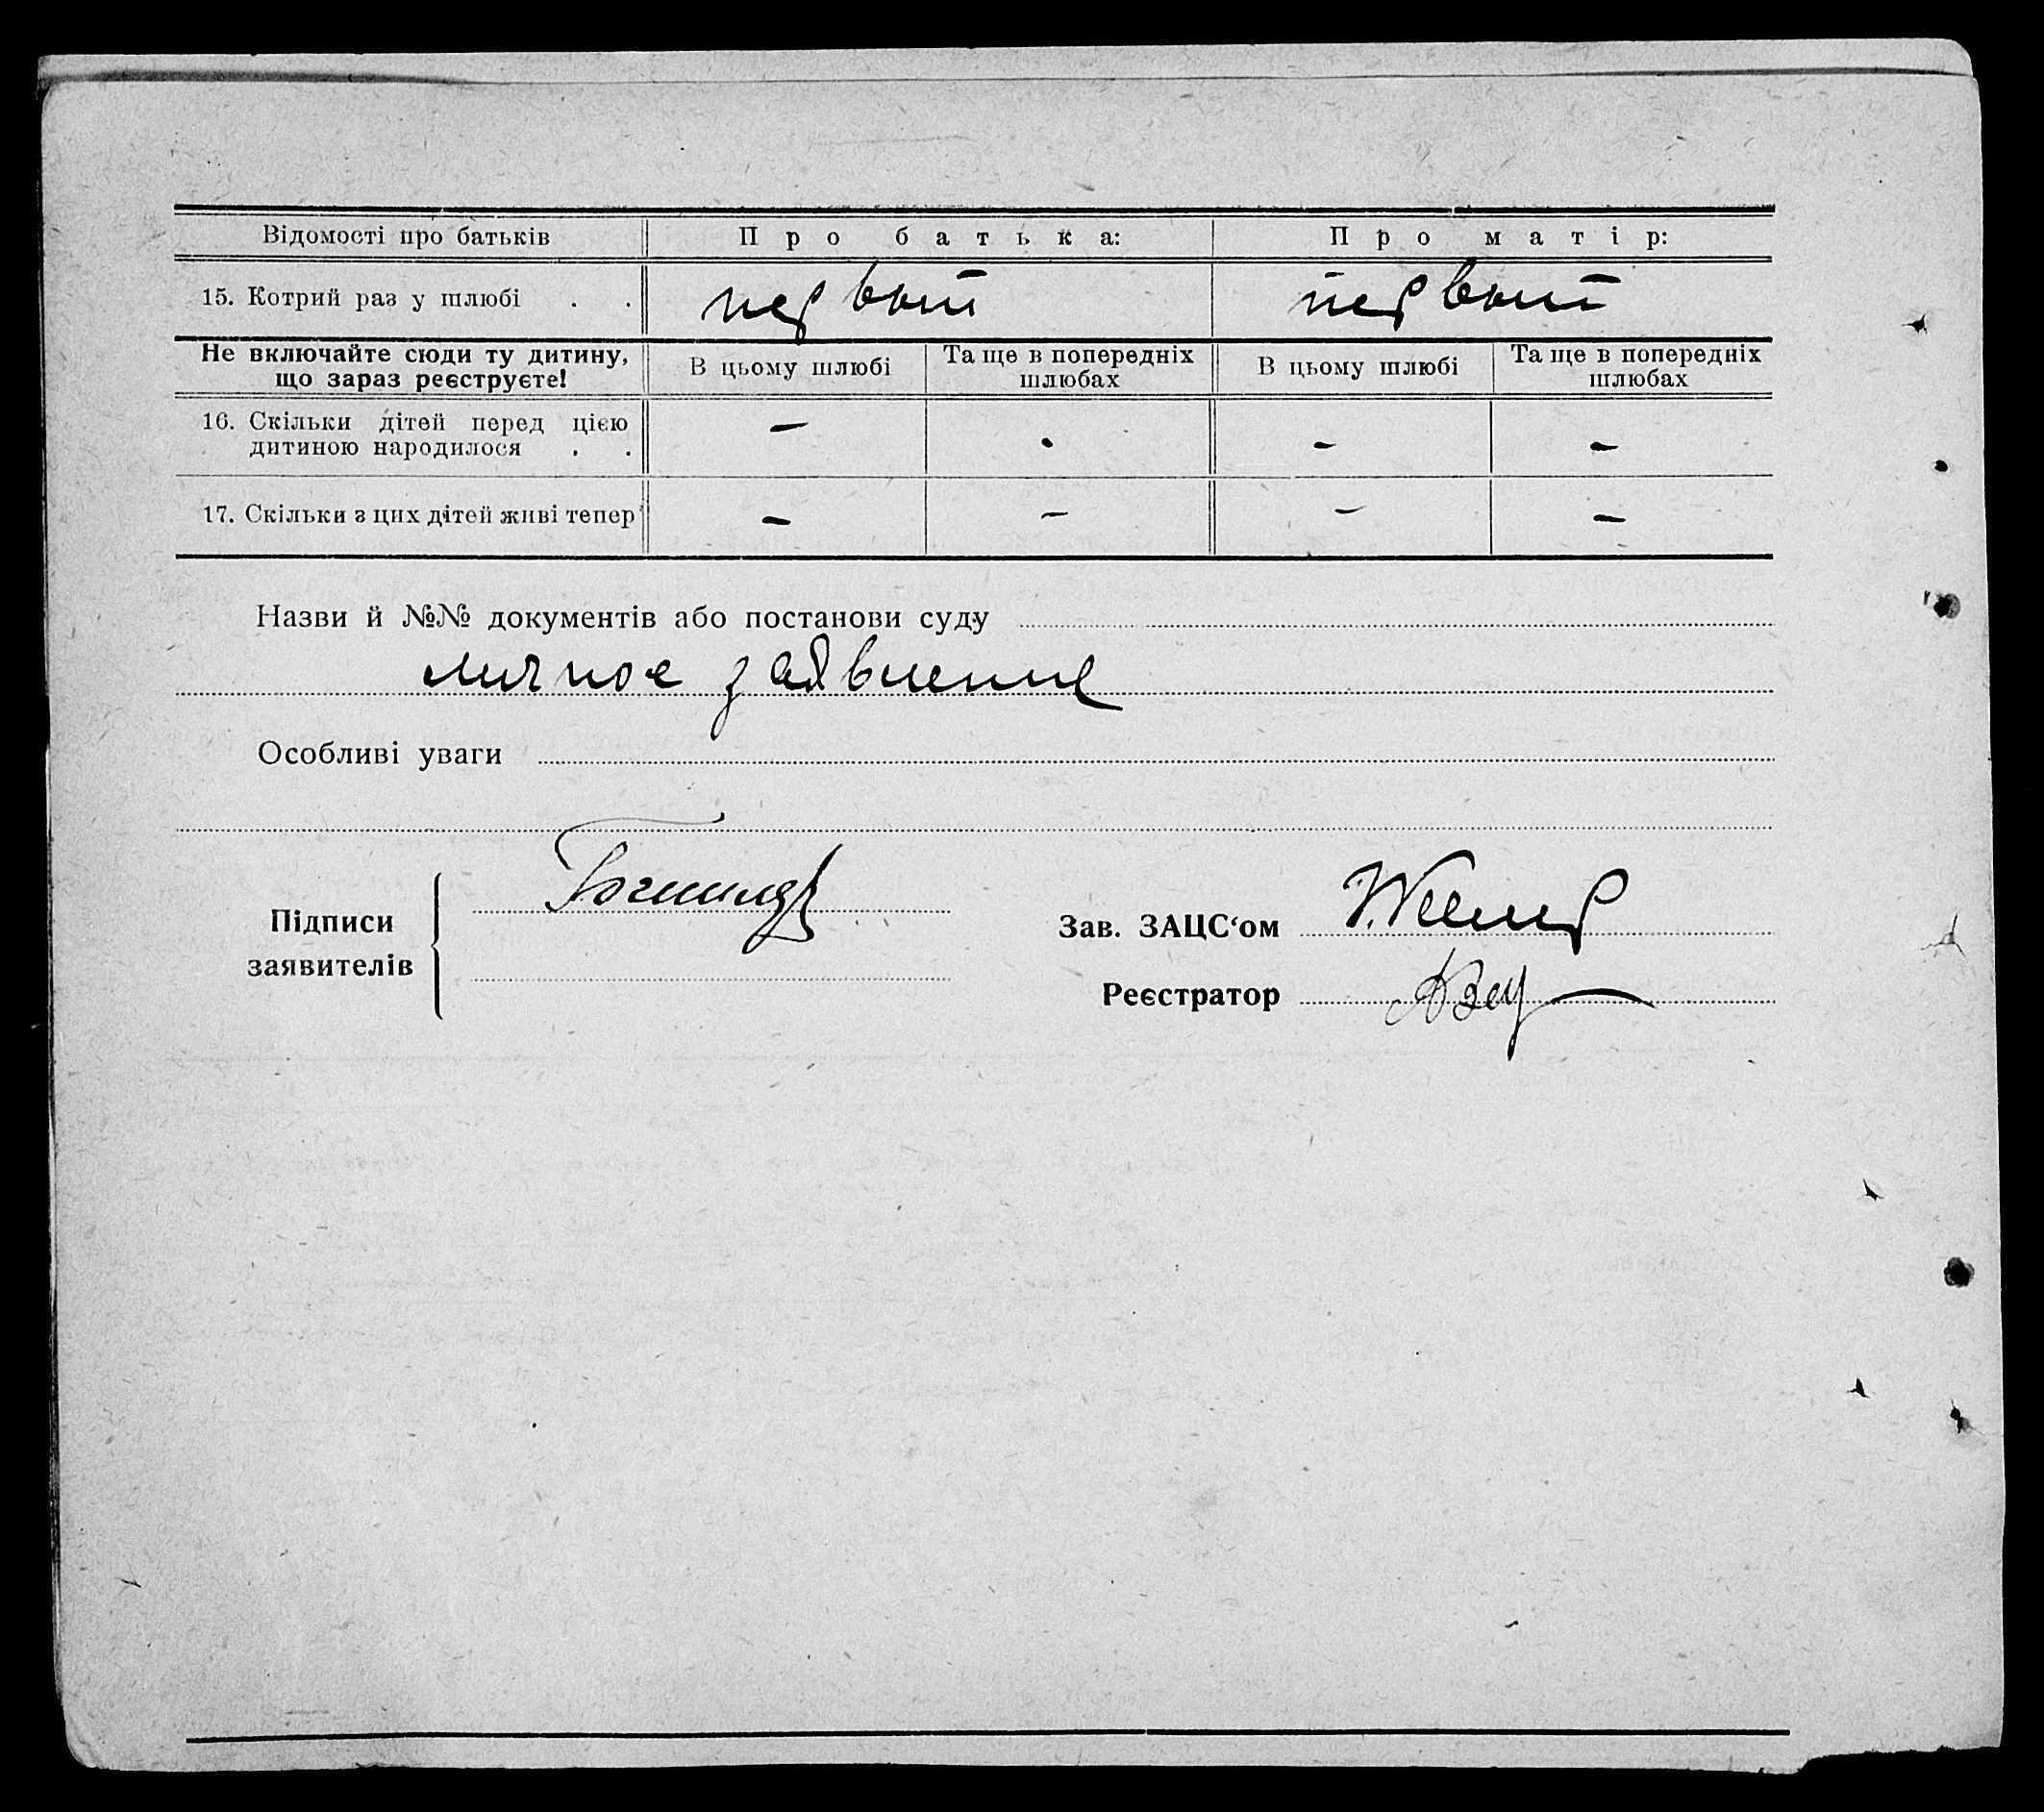 Відомості про батьків Про батька: Про матір:
15. Котрий раз у шлюбі . . первый первый
Не включайте сюди ту дитину, що зараз реєструєте! В цьому шлюбі Та ще в попередніх шлюбах В цьому шлюбі Та ще в попередніх шлюбах
16. Скільки дітей перед цією
дитиною народилося . . – . – –
17. Скільки з цих дітей живі тепер – – – –
Назви й №№ документів або постанови суду
личное заявление
Особливі уваги
Підписи
заявителів
Зав. ЗАЦС‘ом
Реєстратор